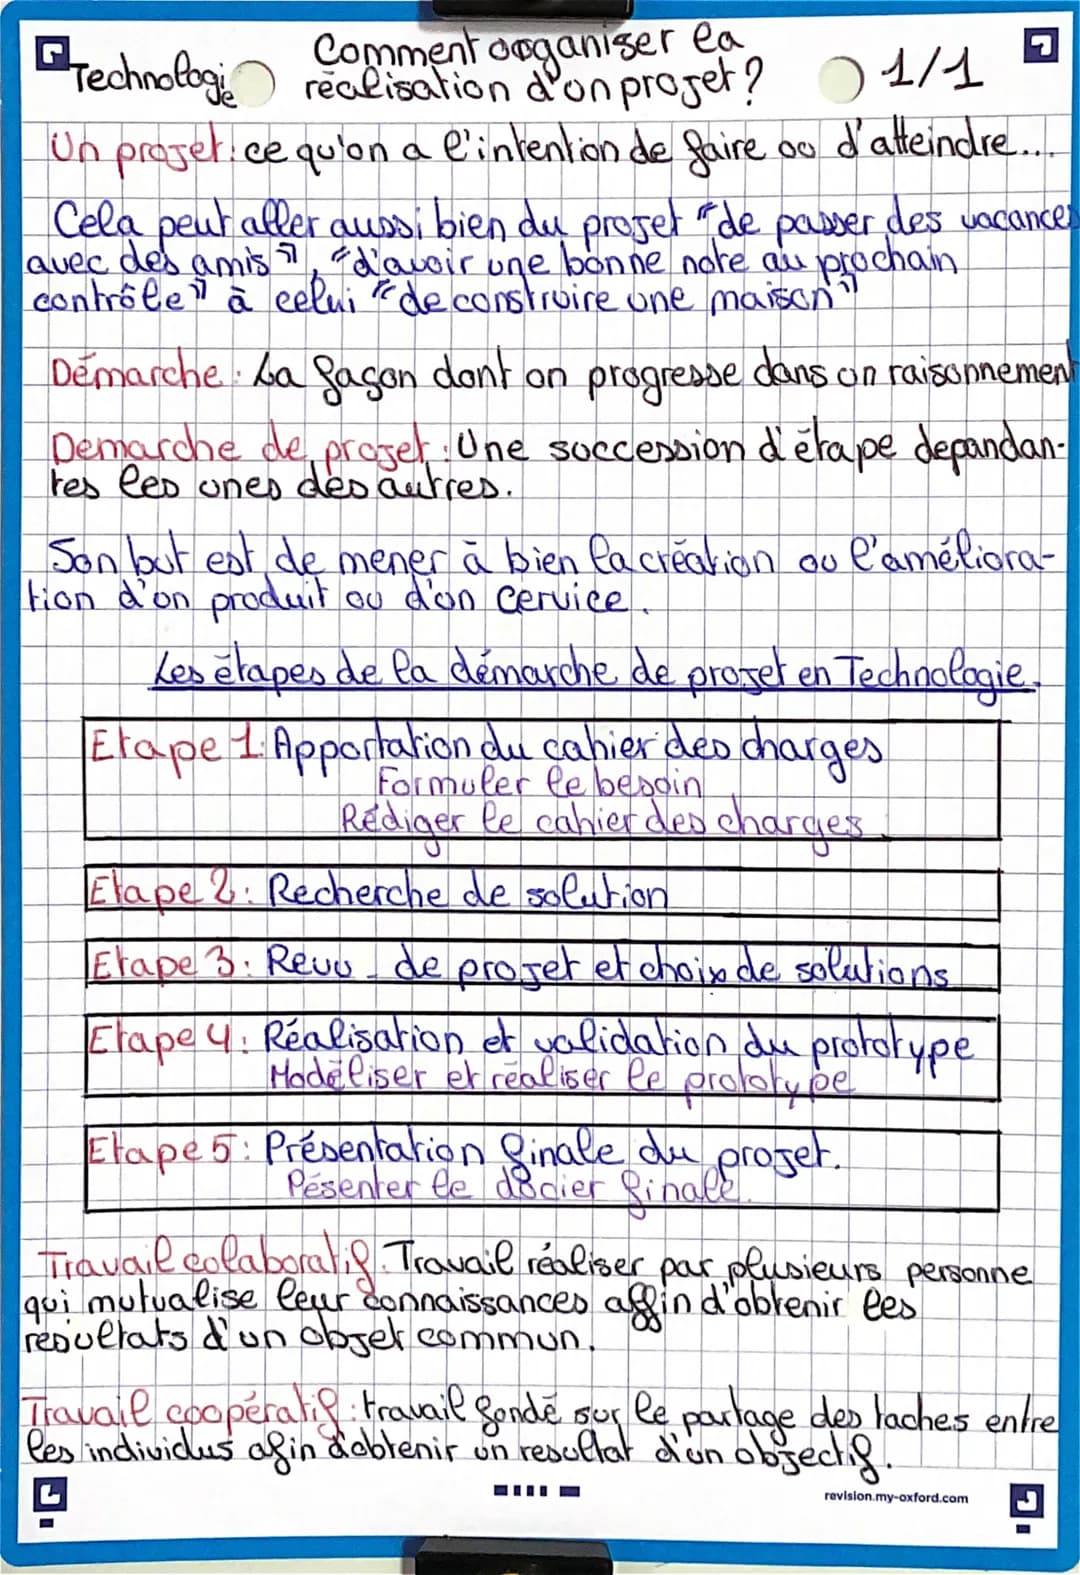 Comment organiser la
Technologie réalisation d'un projet? 1/1
Un projet: ce qu'on a l'intention de faire ou d'atteindre...
Cela peut aller aussi bien du projet "de passer des vacances
avec des amis", "d'avoir une bonne note au prochain
contrôle" à celui "de construire une maison"
Démarche: La façon dont on progresse dans un raisonnement
Demarche de projet: Une succession d'étape depandan-
tes les unes des autres.
Son but est de mener à bien la création ou l'améliora-
tion d'un produit ou d'un cervice.
Les étapes de la démarche de projet en Technologie.
Etape 1: Apportation du cahier des charges
Formuler le besoin
Rédiger le cahier des charges.
Etape 2: Recherche de solution
Etape 3: Revu de projet et choix de solutions
Etape 4: Réalisation et validation du prototype
Modéliser et réaliser le prototype
Etape 5: Présentation finale du projet.
Pésenter le docier finale.
Travail colaboratif: Travail réaliser par plusieurs personne
qui mutualise leur connaissances affin d'obtenir les
resultats d'un objet commun.
Travail coopératif: travail fondé sur le partage des taches entre
les individus afin d'obtenir un resultat d'un objectif.
revision.my-oxford.com